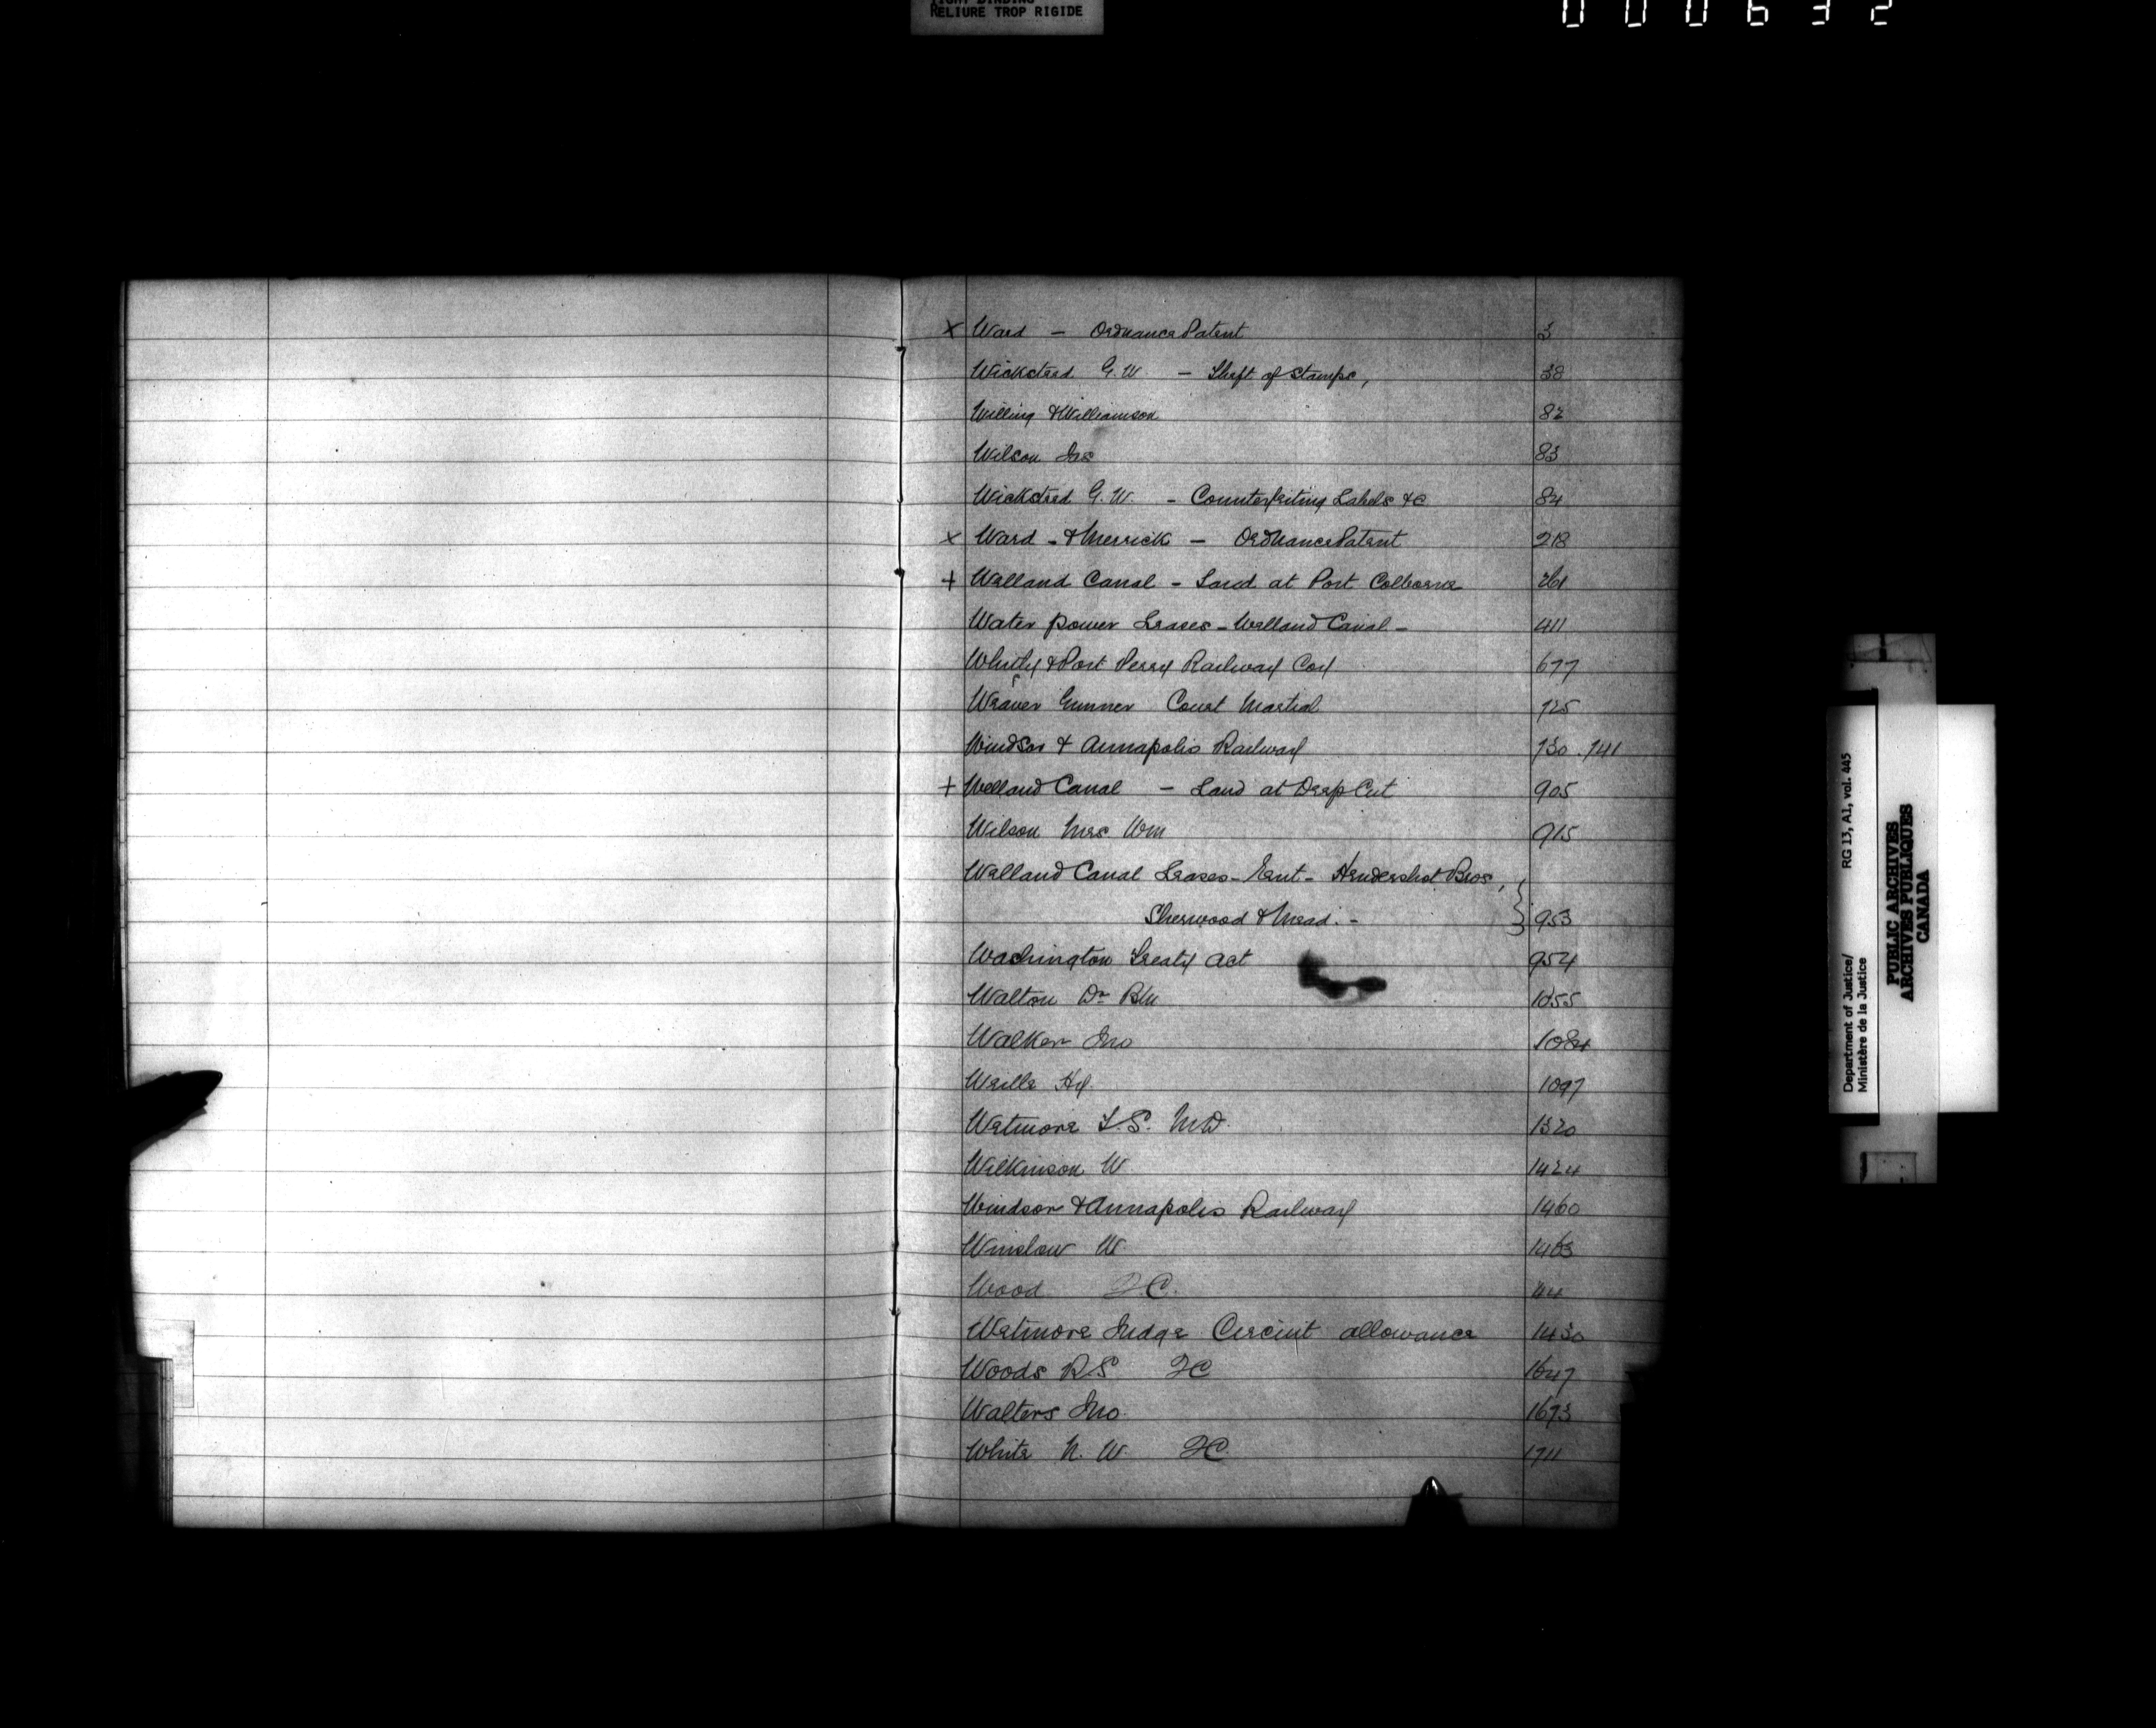 TIGHT BINDING
RELIURE TROP RIGIDE
000632
x Ward - Ordnance Patent 3
Wicksteed G. W. - Theft of Stamps, 38
Willing & Williamson 82
Wilson Jas 83
Wicksteed G. W. - Counterfeiting Labels &c 84
x Ward - & Merrick - Ordnance Patent 218
+ Welland Canal - Land at Port Colborne 261
Water power Leases - Welland Canal - 411
Whitby & Port Perry Railway Coy 677
Weaver Gunner Court Martial 725
Windsor & Annapolis Railway 730. 741
+ Welland Canal - Land at Deep Cut 905
Wilson Mrs. Wm 915
Welland Canal Leases - Hendershot Bros, }
Sherwood & Mead. - } 953
Washington Treaty Act 954
Walton Dr 1055
Walker Jno 1084
Wells Hy. 1097
Wetmore T. S. M.D. 1320
Wilkinson W 1424
Windsor & Annapolis Railway 1460
Winslow W. 1463
Wood J C. 44
Wetmore Judge Circuit allowance 1430
Woods R S J C 1647
Walters Jno. 1673
White N. W. J C 1711
Department of Justice/ RG 13, A1, vol. 445
Ministère de la Justice
PUBLIC ARCHIVES
ARCHIVES PUBLIQUES
CANADA